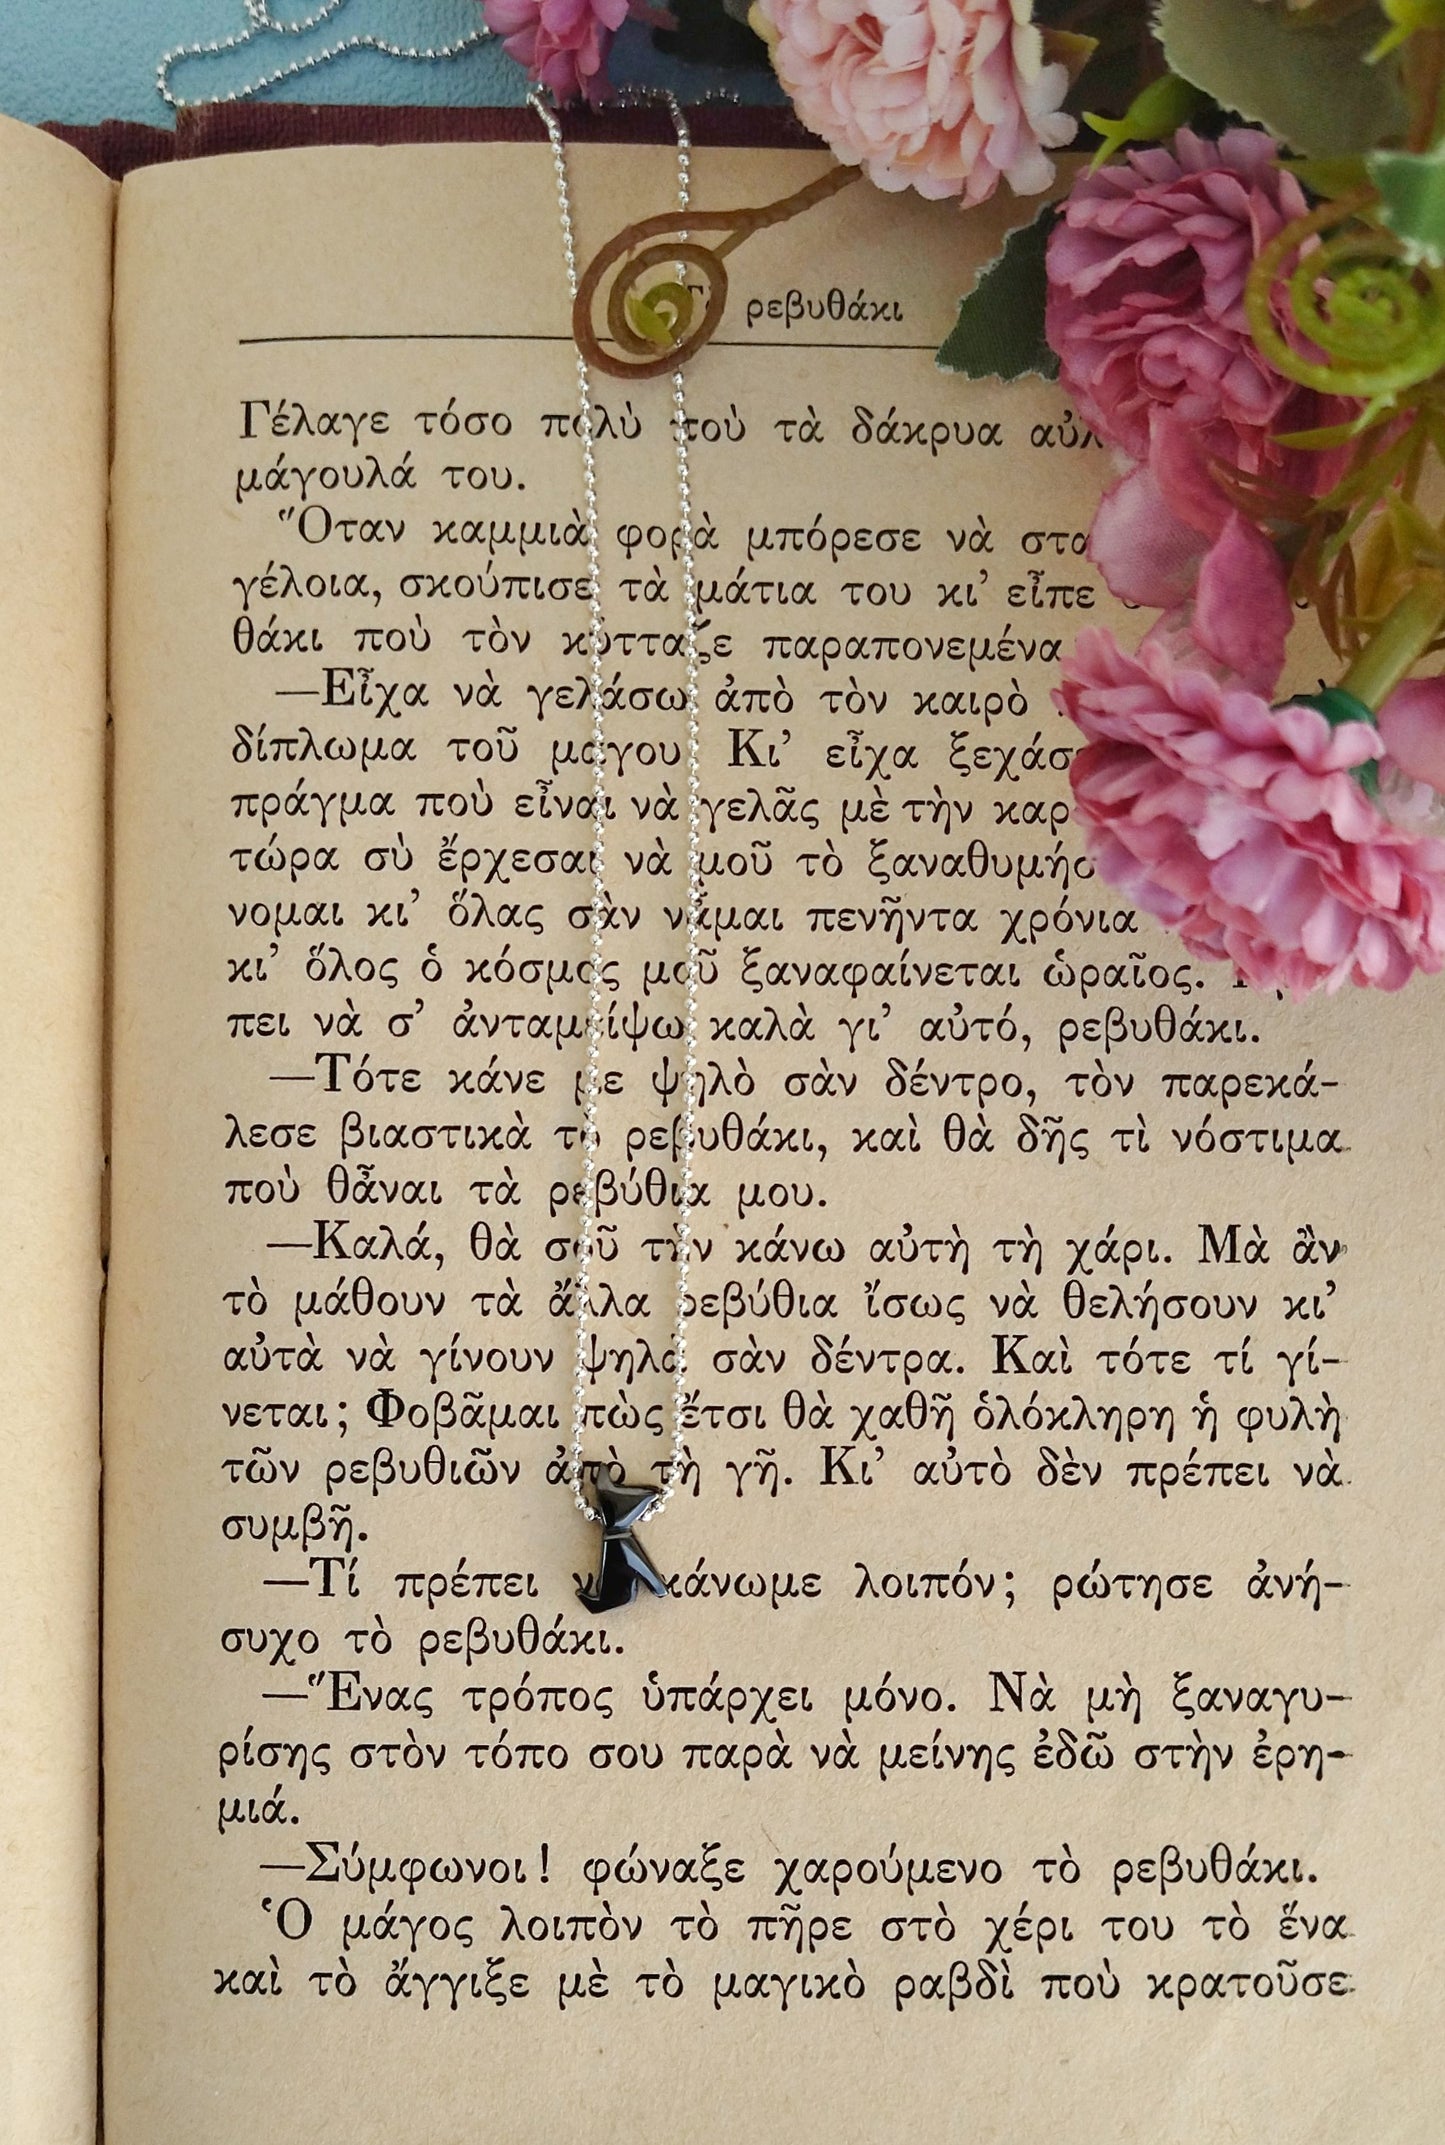 ρεβυθάκι
Γέλαγε τόσο πολὺ ποὺ τὰ δάκρυα
μάγουλά του.
Ὅταν καμμιὰ φορὰ μπόρεσε νὰ
γέλοια, σκούπισε τὰ μάτια του κι’ εἶπε
θάκι ποὺ τὸν κύτταζε παραπονεμένα
—Εἶχα νὰ γελάσω ἀπὸ τὸν καιρὸ
δίπλωμα τοῦ μάγου Κι’ εἶχα
πράγμα ποὺ εἶναι νὰ γελᾶς μὲ τὴν
τώρα σὺ ἔρχεσαι νὰ μοῦ τὸ
νομαι κι’ ὅλας σὰν νἆμαι πενῆντα χρόνια
κι’ ὅλος ὁ κόσμος μοῦ ξαναφαίνεται ὡραῖος.
πει νὰ σ’ ἀνταμείψω καλὰ γι’ αὐτό, ρεβυθάκι.
—Τότε κάνε με ψηλὸ σὰν δέντρο, τὸν παρεκά-
λεσε βιαστικὰ τὸ ρεβυθάκι, καὶ θὰ δῆς τὶ νόστιμα
ποὺ θἆναι τὰ ρεβύθια μου.
—Καλά, θὰ σοῦ τὴν κάνω αὐτὴ τὴ χάρι. Μὰ ἂν
τὸ μάθουν τὰ ἄλλα ρεβύθια ἴσως νὰ θελήσουν κι’
αὐτὰ νὰ γίνουν ψηλὰ σὰν δέντρα. Καὶ τότε τί γί-
νεται; Φοβᾶμαι πὼς ἔτσι θὰ χαθῆ ὁλόκληρη ἡ φυλὴ
τῶν ρεβυθιῶν ἀπὸ τὴ γῆ. Κι’ αὐτὸ δὲν πρέπει νὰ
συμβῆ.
—Τί πρέπει νὰ κάνωμε λοιπόν; ρώτησε ἀνή-
συχο τὸ ρεβυθάκι.
—Ἕνας τρόπος ὑπάρχει μόνο. Νὰ μὴ ξαναγυ-
ρίσης στὸν τόπο σου παρὰ νὰ μείνης ἐδῶ στὴν ἐρη-
μιά.
—Σύμφωνοι! φώναξε χαρούμενο τὸ ρεβυθάκι.
Ὁ μάγος λοιπὸν τὸ πῆρε στὸ χέρι του τὸ ἕνα
καὶ τὸ ἄγγιξε μὲ τὸ μαγικὸ ραβδὶ ποὺ κρατοῦσε